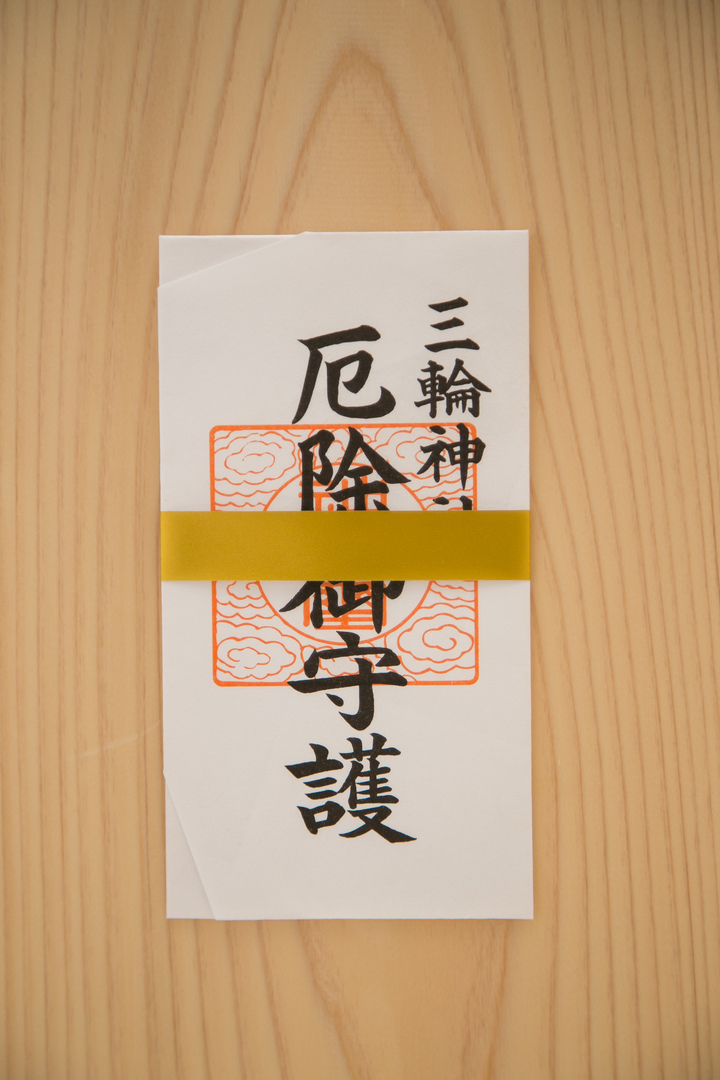 三輪神
厄除御守護